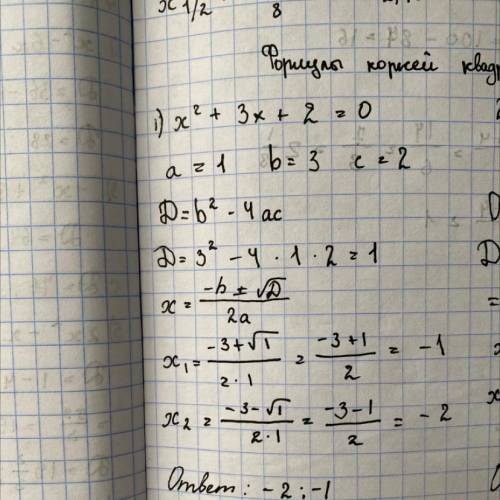 x 1/2 8
Формулы корней квадр
1) x² + 3x + 2 = 0
a = 1 b = 3 c = 2
D = b² - 4ac
D = 3² - 4 · 1 · 2 = 1
x = (-b ± √D)/(2a)
x₁ = (-3+√1)/(2·1) = (-3+1)/2 = -1
x₂ = (-3-√1)/(2·1) = (-3-1)/2 = -2
Ответ: -2 ; -1